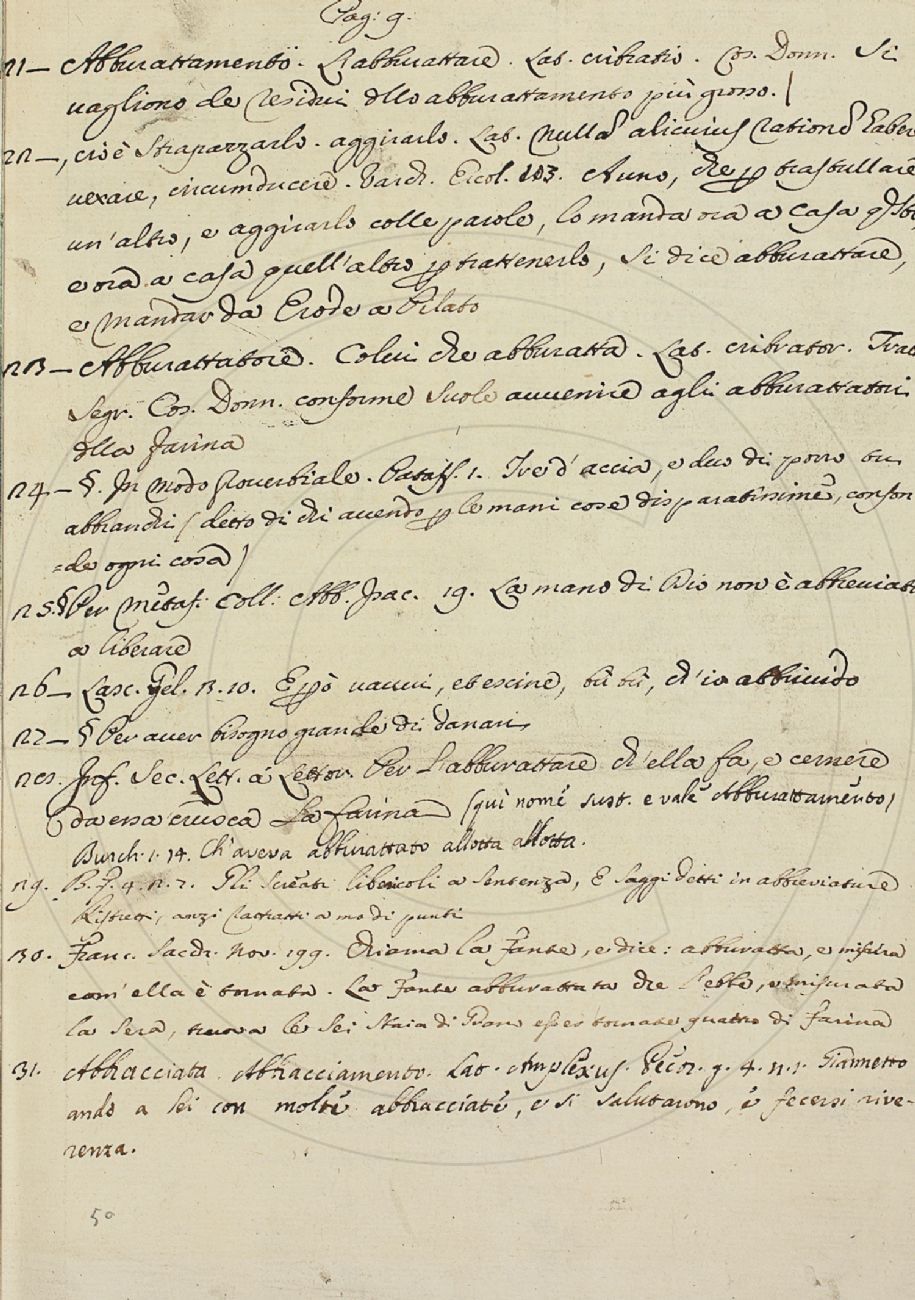 Pag: 9.
21— Abburattamento. L'abburattare. Lat. cribratio. Cos. Donn. Si
vagliono de residui dllo abburattamento più grosso.
22—, cio è Strapazzarlo. aggirarlo. Lat. nulla alicuius ratione haber
vexare, circumducere. Varch. Ercol. 103. A uno, che p trastullare
un'altro, e aggirarlo colle parole, lo manda ora a casa
e ora a casa quell'altro p trattenerlo, si dice abburattare,
e mandar da Erode a Pilato
23— Abburattatore. Colui che abburatta. Lat. cribrator. Trat
Segr. Cos. Donn. conforme suole avvenire agli abburattatori
dlla farina
24.— §. In modo proverbiale. Pataff. 1. Tre d'accia, e duo di porro tu
abbranchi / detto di chi avendo p le mani cose disparatissime, confon
=de ogni cosa /
25. § Per metaf: Coll: Abb. Isac. 19. La mano di Dio non è abbreviata
a liberare
26— Lasc. Gel. 3. 10. E pò vavvi, et escine, tu tu, ch'io abbrivido
27— § Per aver bisogno grande di danari
28. Inf. Sec. Lett. a' Lettor. Per l'abburattare ch'ella fa, e cernere
da essa crusca La farina (qui nome sust. e vale Abburattamento)
Burch. 1. 14. Ch'aveva abburattato allotta allotta.
29. B. 7. 4. n. 2. Gli libricoli a sentenza, E saggi detti in abbreviature
Ristretti, anzi rattratti a mo di punti
30. Franc. Sacch. Nov. 199. Chiama la Fante, e dice: abburatta, e misura
com'ella è tornata. La Fante abburattata che l'ebbe, e misurata
la sera, truova le sei Staia di esser tornate quattro di farina
31. Abbracciata. Abbracciamento. Lat. Amplexus. Pecor. g. 4. n. 1. Giannetto
andò a lei con molte abbracciate, e si salutarono, e fecersi rive-
renza.
50